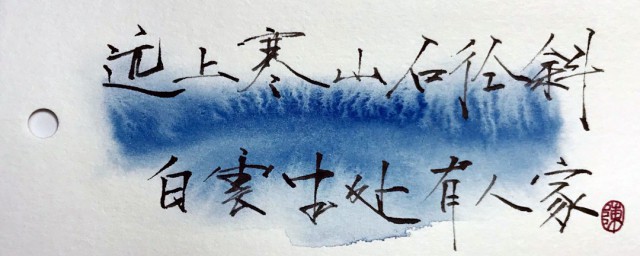 远上寒山石径斜
白雲生处有人家
陳